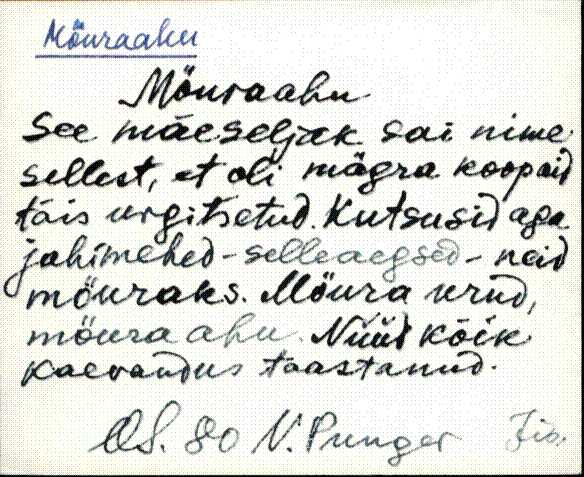 Mõuraahu
Mõuraahu
See mäeseljak sai nime
sellest, et oli mägra koopaid
täis urgitsetud. Kutsusid aga
jahimehed - selleaegsed - neid
mõuraks. Mõura urud,
mõura ahu. Nüüd kõik
kaevandus taastanud.
OS. 80 V. Punger